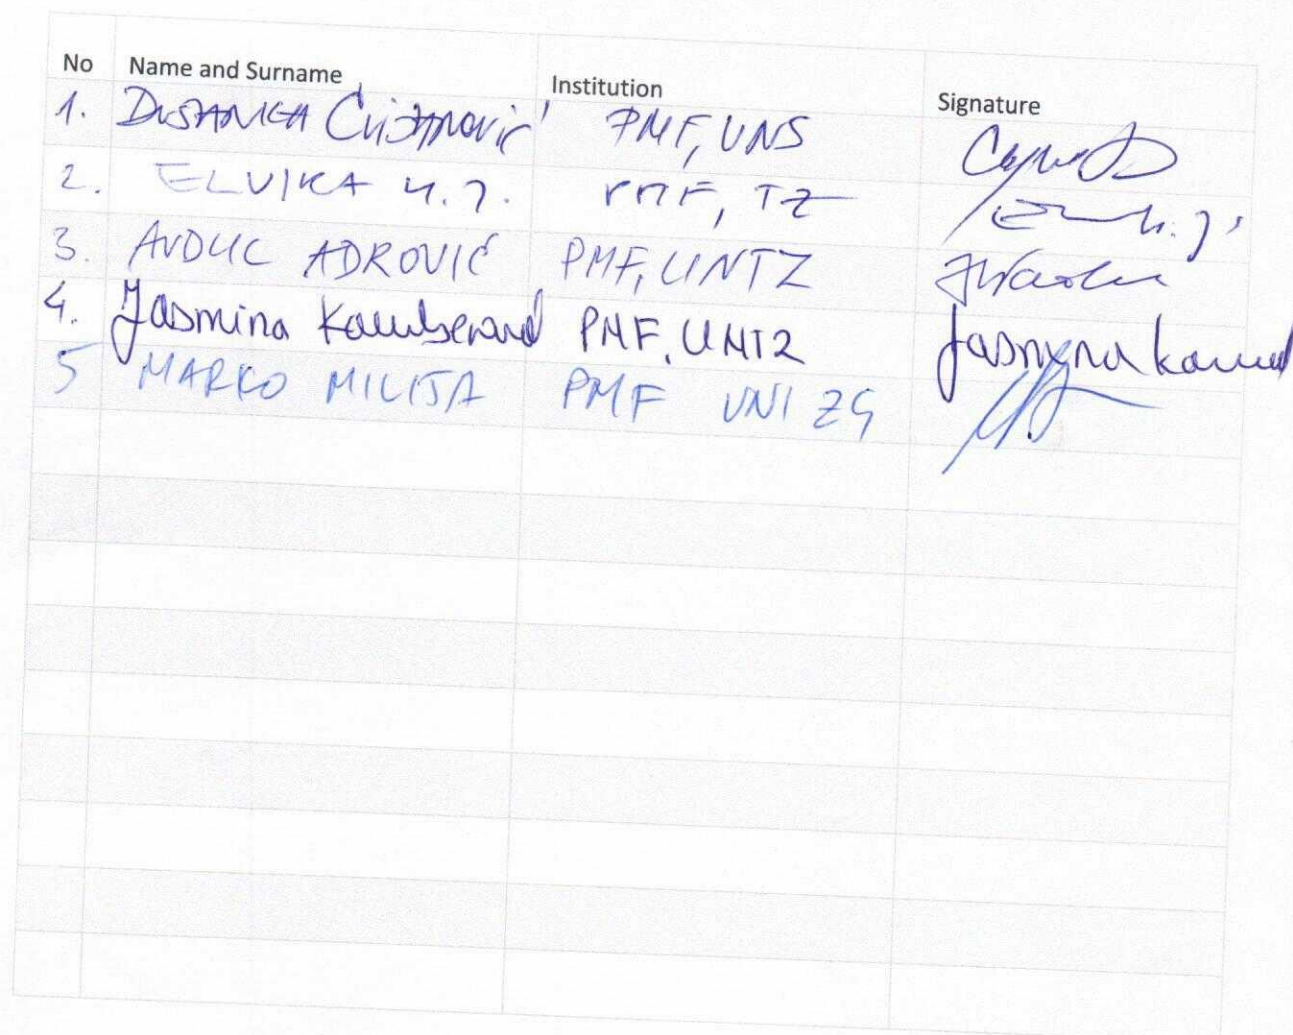 No Name and Surname Institution Signature
1. DUSANKA Cvijanović PMF, UNS
2. ELVIRA H.J. PMF, TZ
3. AVDUL ADROVIĆ PMF, UNTZ
4. Jasmina Kamberović PMF, UNTZ Jasmina Kamb
5 MARKO MILIŠA PMF UNI ZG